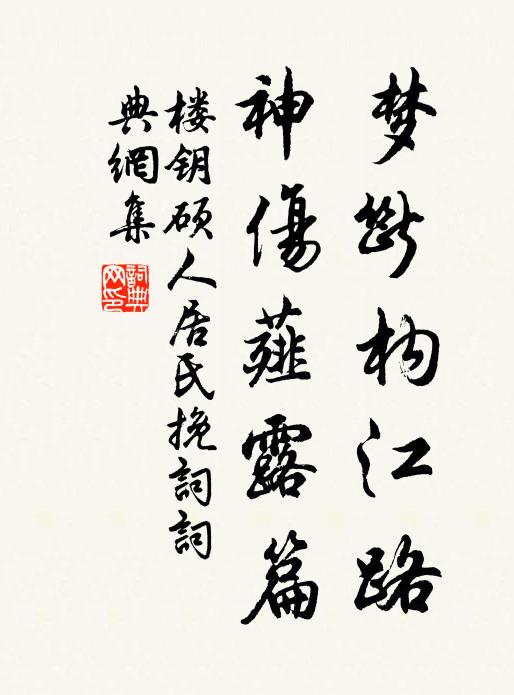 梦断杓江路
神傷薤露篇
楼钥硕人居氏挽詞詞
典網集
詞典
网印